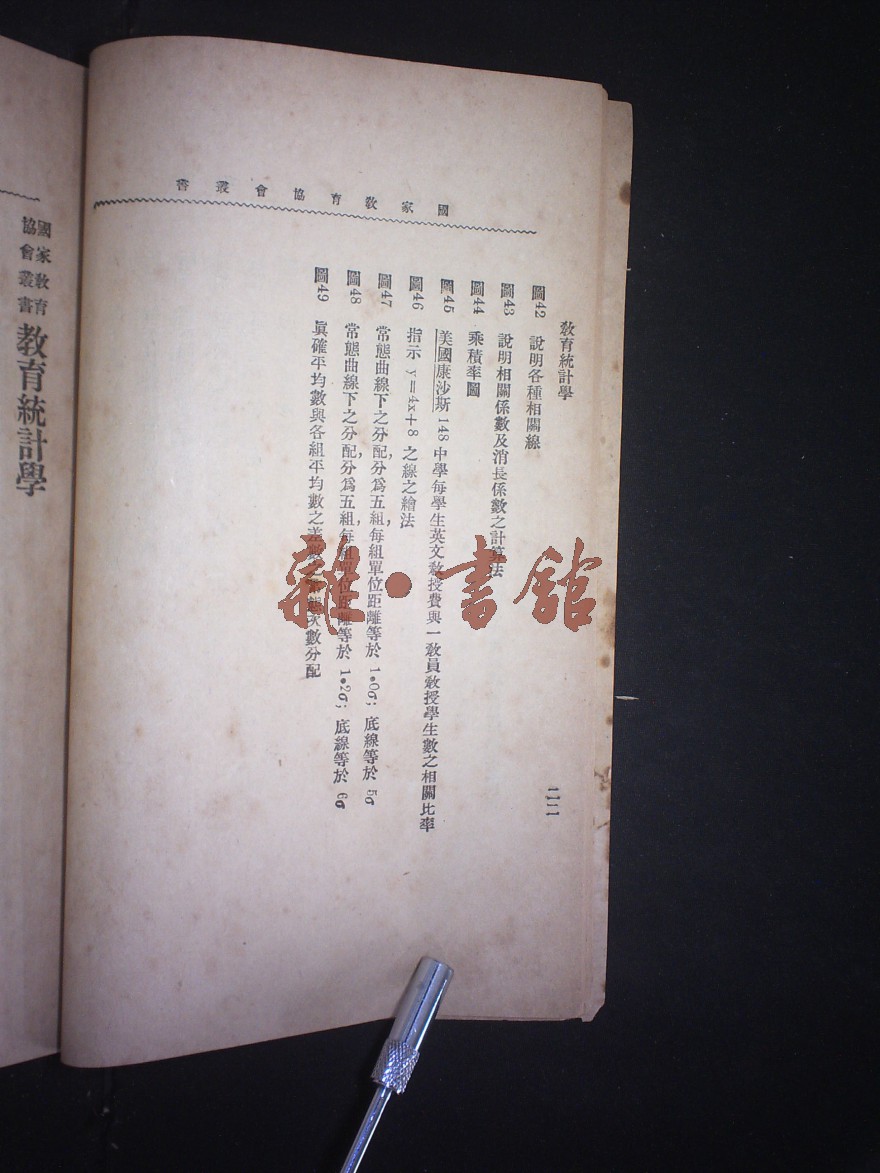 國家教育協會叢書
教育統計學
圖42 說明各種相關線
圖43 說明相關係數及消長係數之計算法
圖44 乘積率圖
圖45 美國康沙斯 148 中學每學生英文教授費與一教員教授學生數之相關比率
圖46 指示 y=4x+8 之線之繪法
圖47 常態曲線下之分配,分爲五組,每組單位距離等於 1.0σ; 底線等於 5σ
圖48 常態曲線下之分配,分爲五組,每組單位距離等於 1.2σ; 底線等於 6σ
圖49 眞確平均數與各組平均數之差數之常態次數分配
國家教育
協會叢書
教育統計學
雜·書館